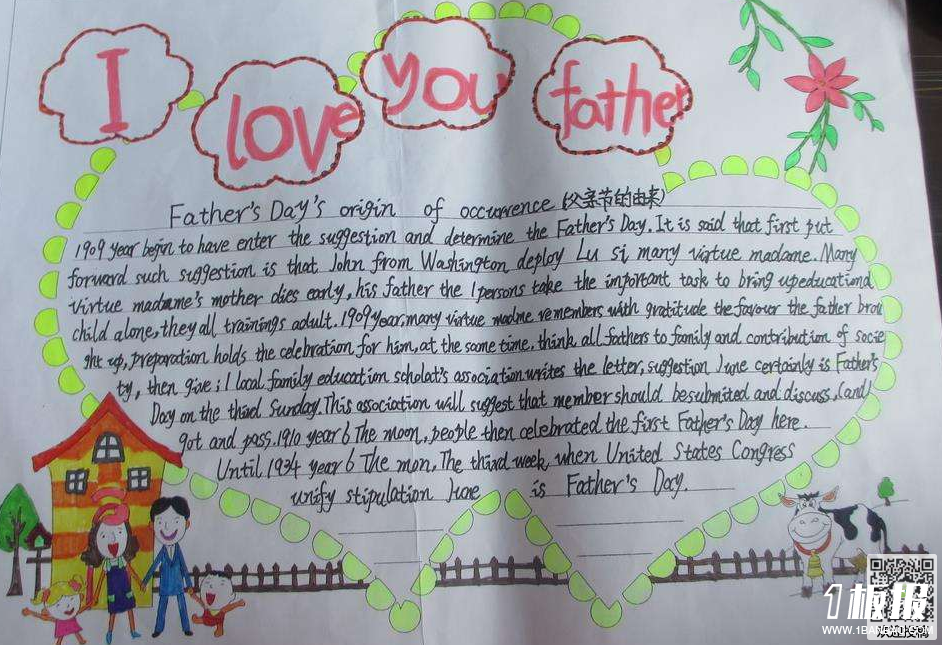 I love you father
Father's Day's origin of occurrence (父亲节的由来)
1909 year begin to have enter the suggestion and determine the Father's Day. It is said that first put
forward such suggestion is that John from Washington deploy Lu si many virtue madame. Many
virtue madame's mother dies early, his father the 1persons take the important task to bring upeducationd
child alone, they all trainings adult. 1909 year, many virtue madme remembers with gratitude the favour the father brou
ght up, preparation holds the celebration for him, at the same time, think all fathers to family and contribution of socie
ty, then give; 1 local family education scholat's association writes the letter, suggestion June certainly is Father's
Day on the third Sunday. This association will suggest that member should besubmited and discuss, (and
got and pass. 1910 year 6 The moon, people then celebrated the first Father's Day here.
Until 1934 year 6 The mon, The third week, when United States Congress
unify stipulation June is Father's Day.
1板报
WWW.1BANBAO.COM